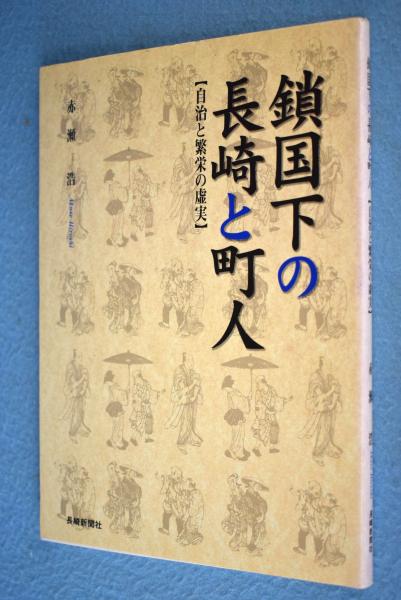 鎖国下の
長崎と町人
【自治と繁栄の虚実】
赤瀬 浩
Akase Hiroshi
長崎新聞社